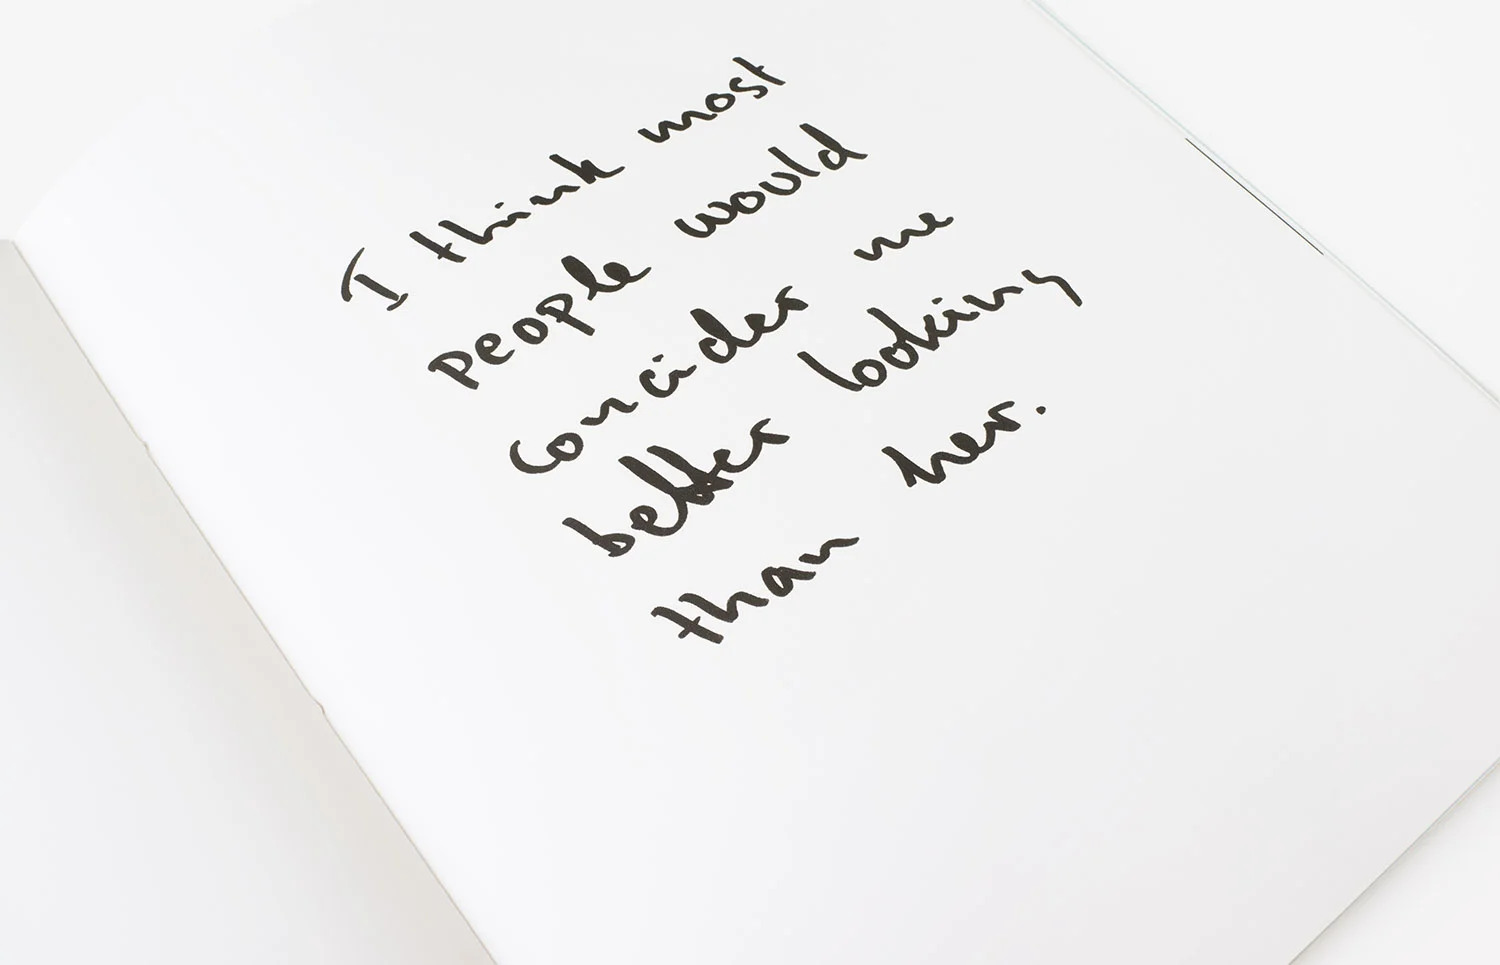 I think most
people would
concider me
better looking
than her.